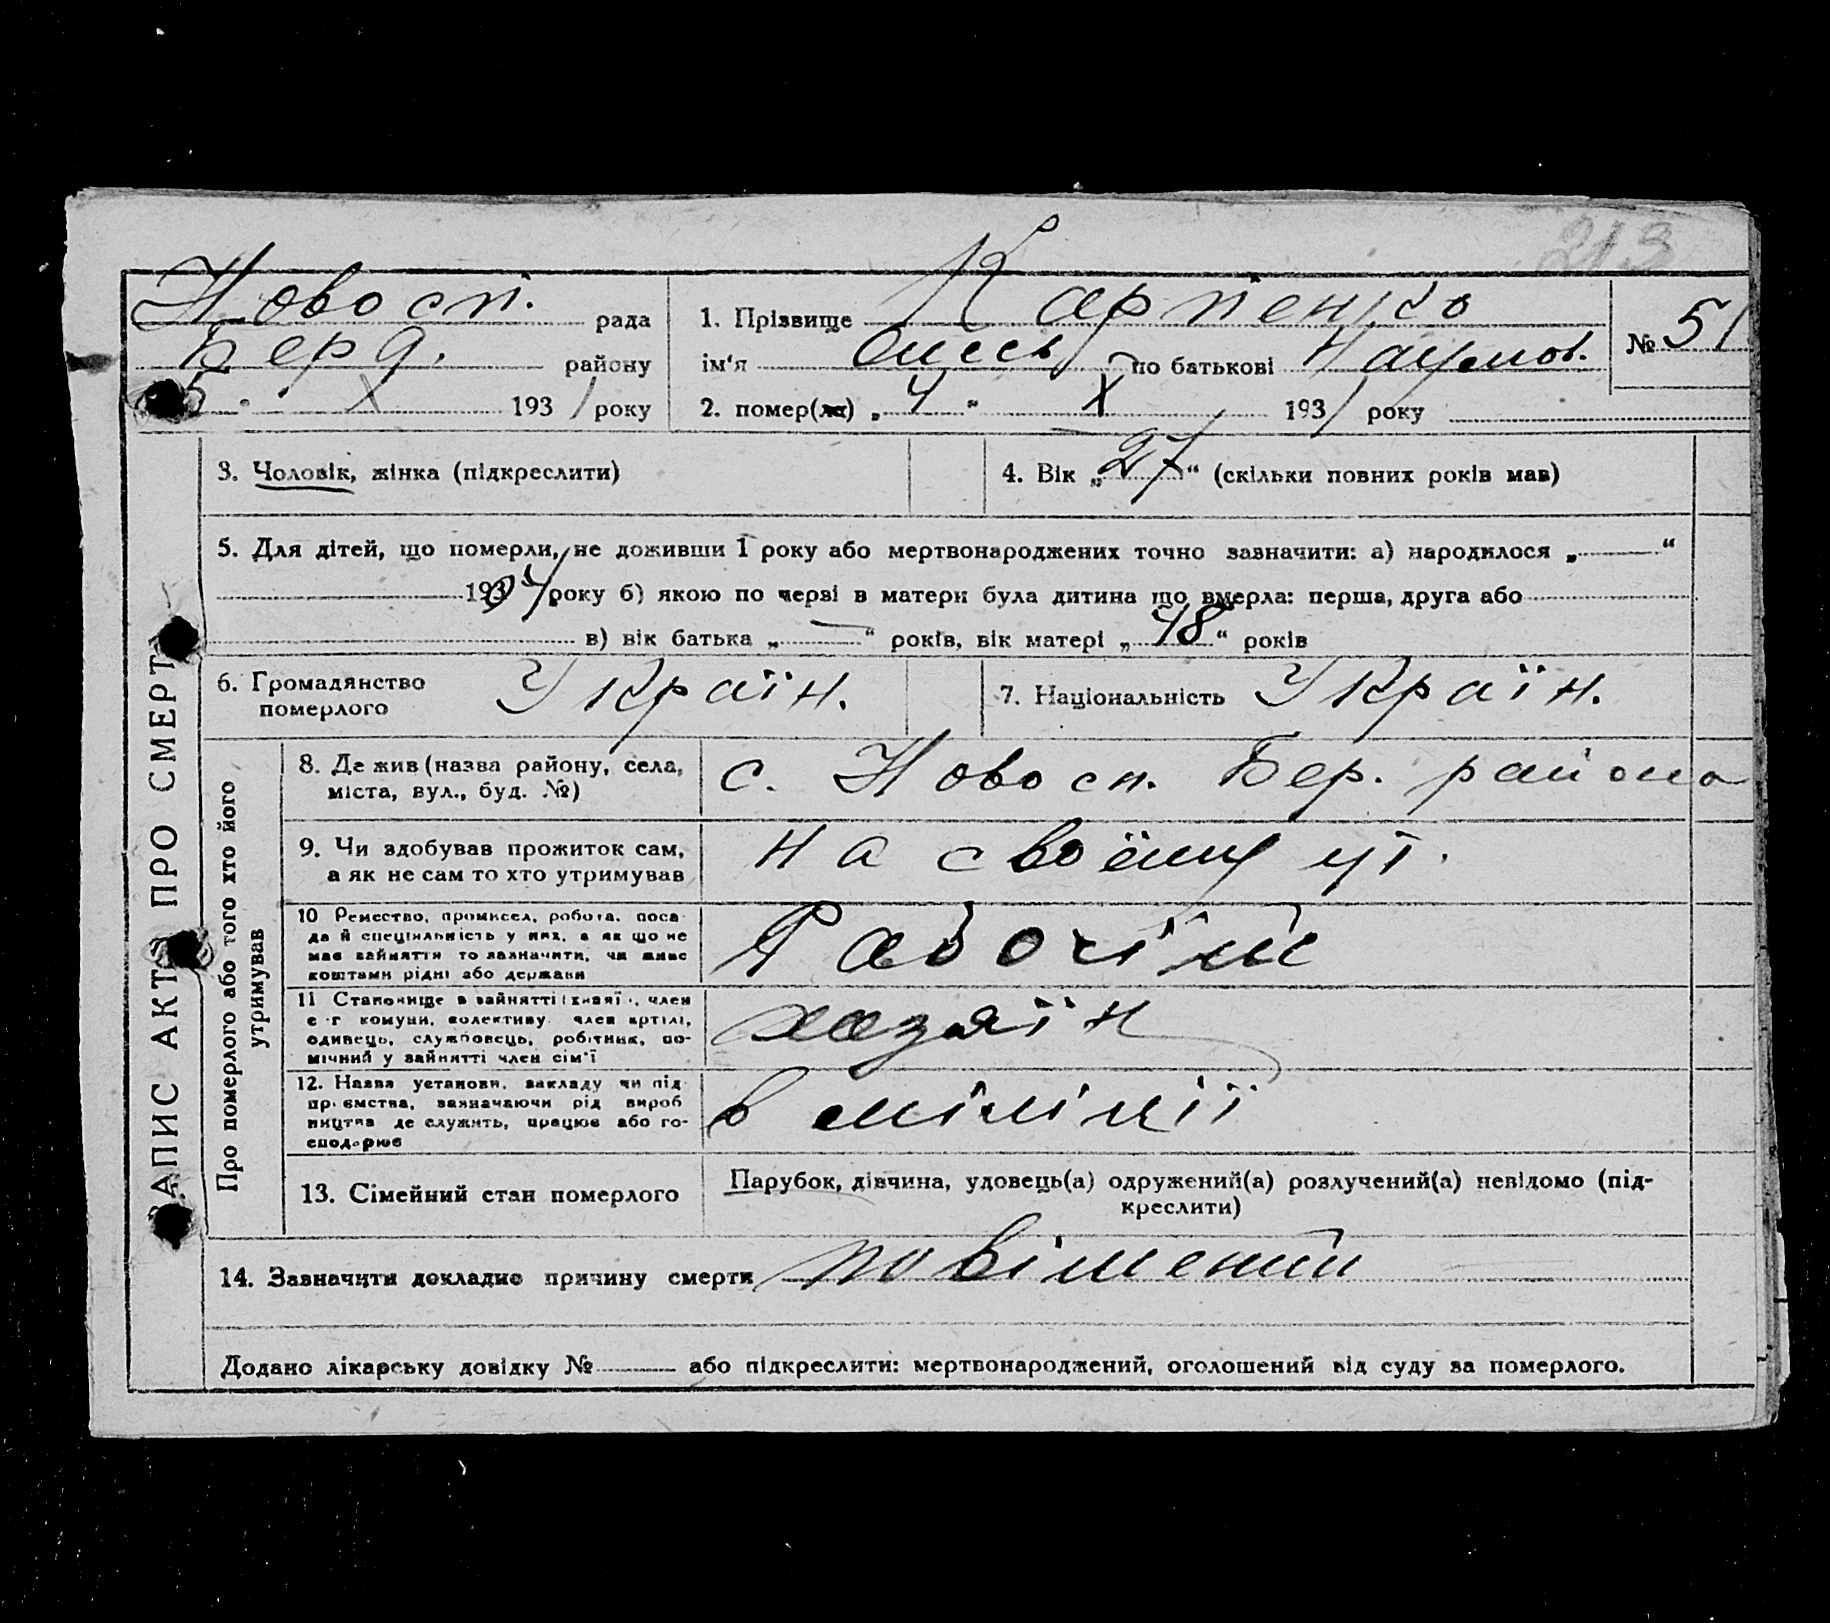 213
Новосп. рада
Берд. району
5 " X 1931 року
1. Прізвище Карпенко
ім'я Олесь по батькові Наумов.
2. помер(ла) „ 4 " X 1931 року
№ 51
ЗАПИС АКТУ ПРО СМЕРТЬ
3. Чоловік, жінка (підкреслити)
4. Вік „ 27 " (скільки повних років мав)
5. Для дітей, що померли, не доживши 1 року або мертвонароджених точно зазначити: а) народилося „ — "
1904 року б) якою по черзі в матери була дитина що вмерла: перша, друга або
в) вік батька „ — " років, вік матері „ 48 " років
6. Громадянство
померлого
Україн.
7. Національність Україн.
Про померлого або того хто його
утримував
8. Де жив (назва району, села,
міста, вул., буд. №)
с. Новосп. Бер. района
9. Чи здобував прожиток сам,
а як не сам то хто утримував
на своёму ут.
10 Ремество, промисел, робота, поса-
да й спеціяльність у них, а як що не
мав зайняття то зазначити, чи живе
коштами рідні або держави
Рабочій
11 Становище в зайнятті (хазяї, член
с-г комуни, колективу, член артілі,
одинець, службовець, робітник, по-
мічний у зайнятті член сім'ї
хазяїн
12. Назва установи, закладу чи під-
приємства, зазначаючи рід вироб-
ництва де служить, працює або го-
сподарює
в міліції
13. Сімейний стан померлого
Парубок, дівчина, удовець(а) одружений(а) розлучений(а) невідомо (під-
креслити)
14. Зазначити докладно причину смерти повішений
Додано лікарську довідку № або підкреслити: мертвонароджений, оголошений від суду за померлого.